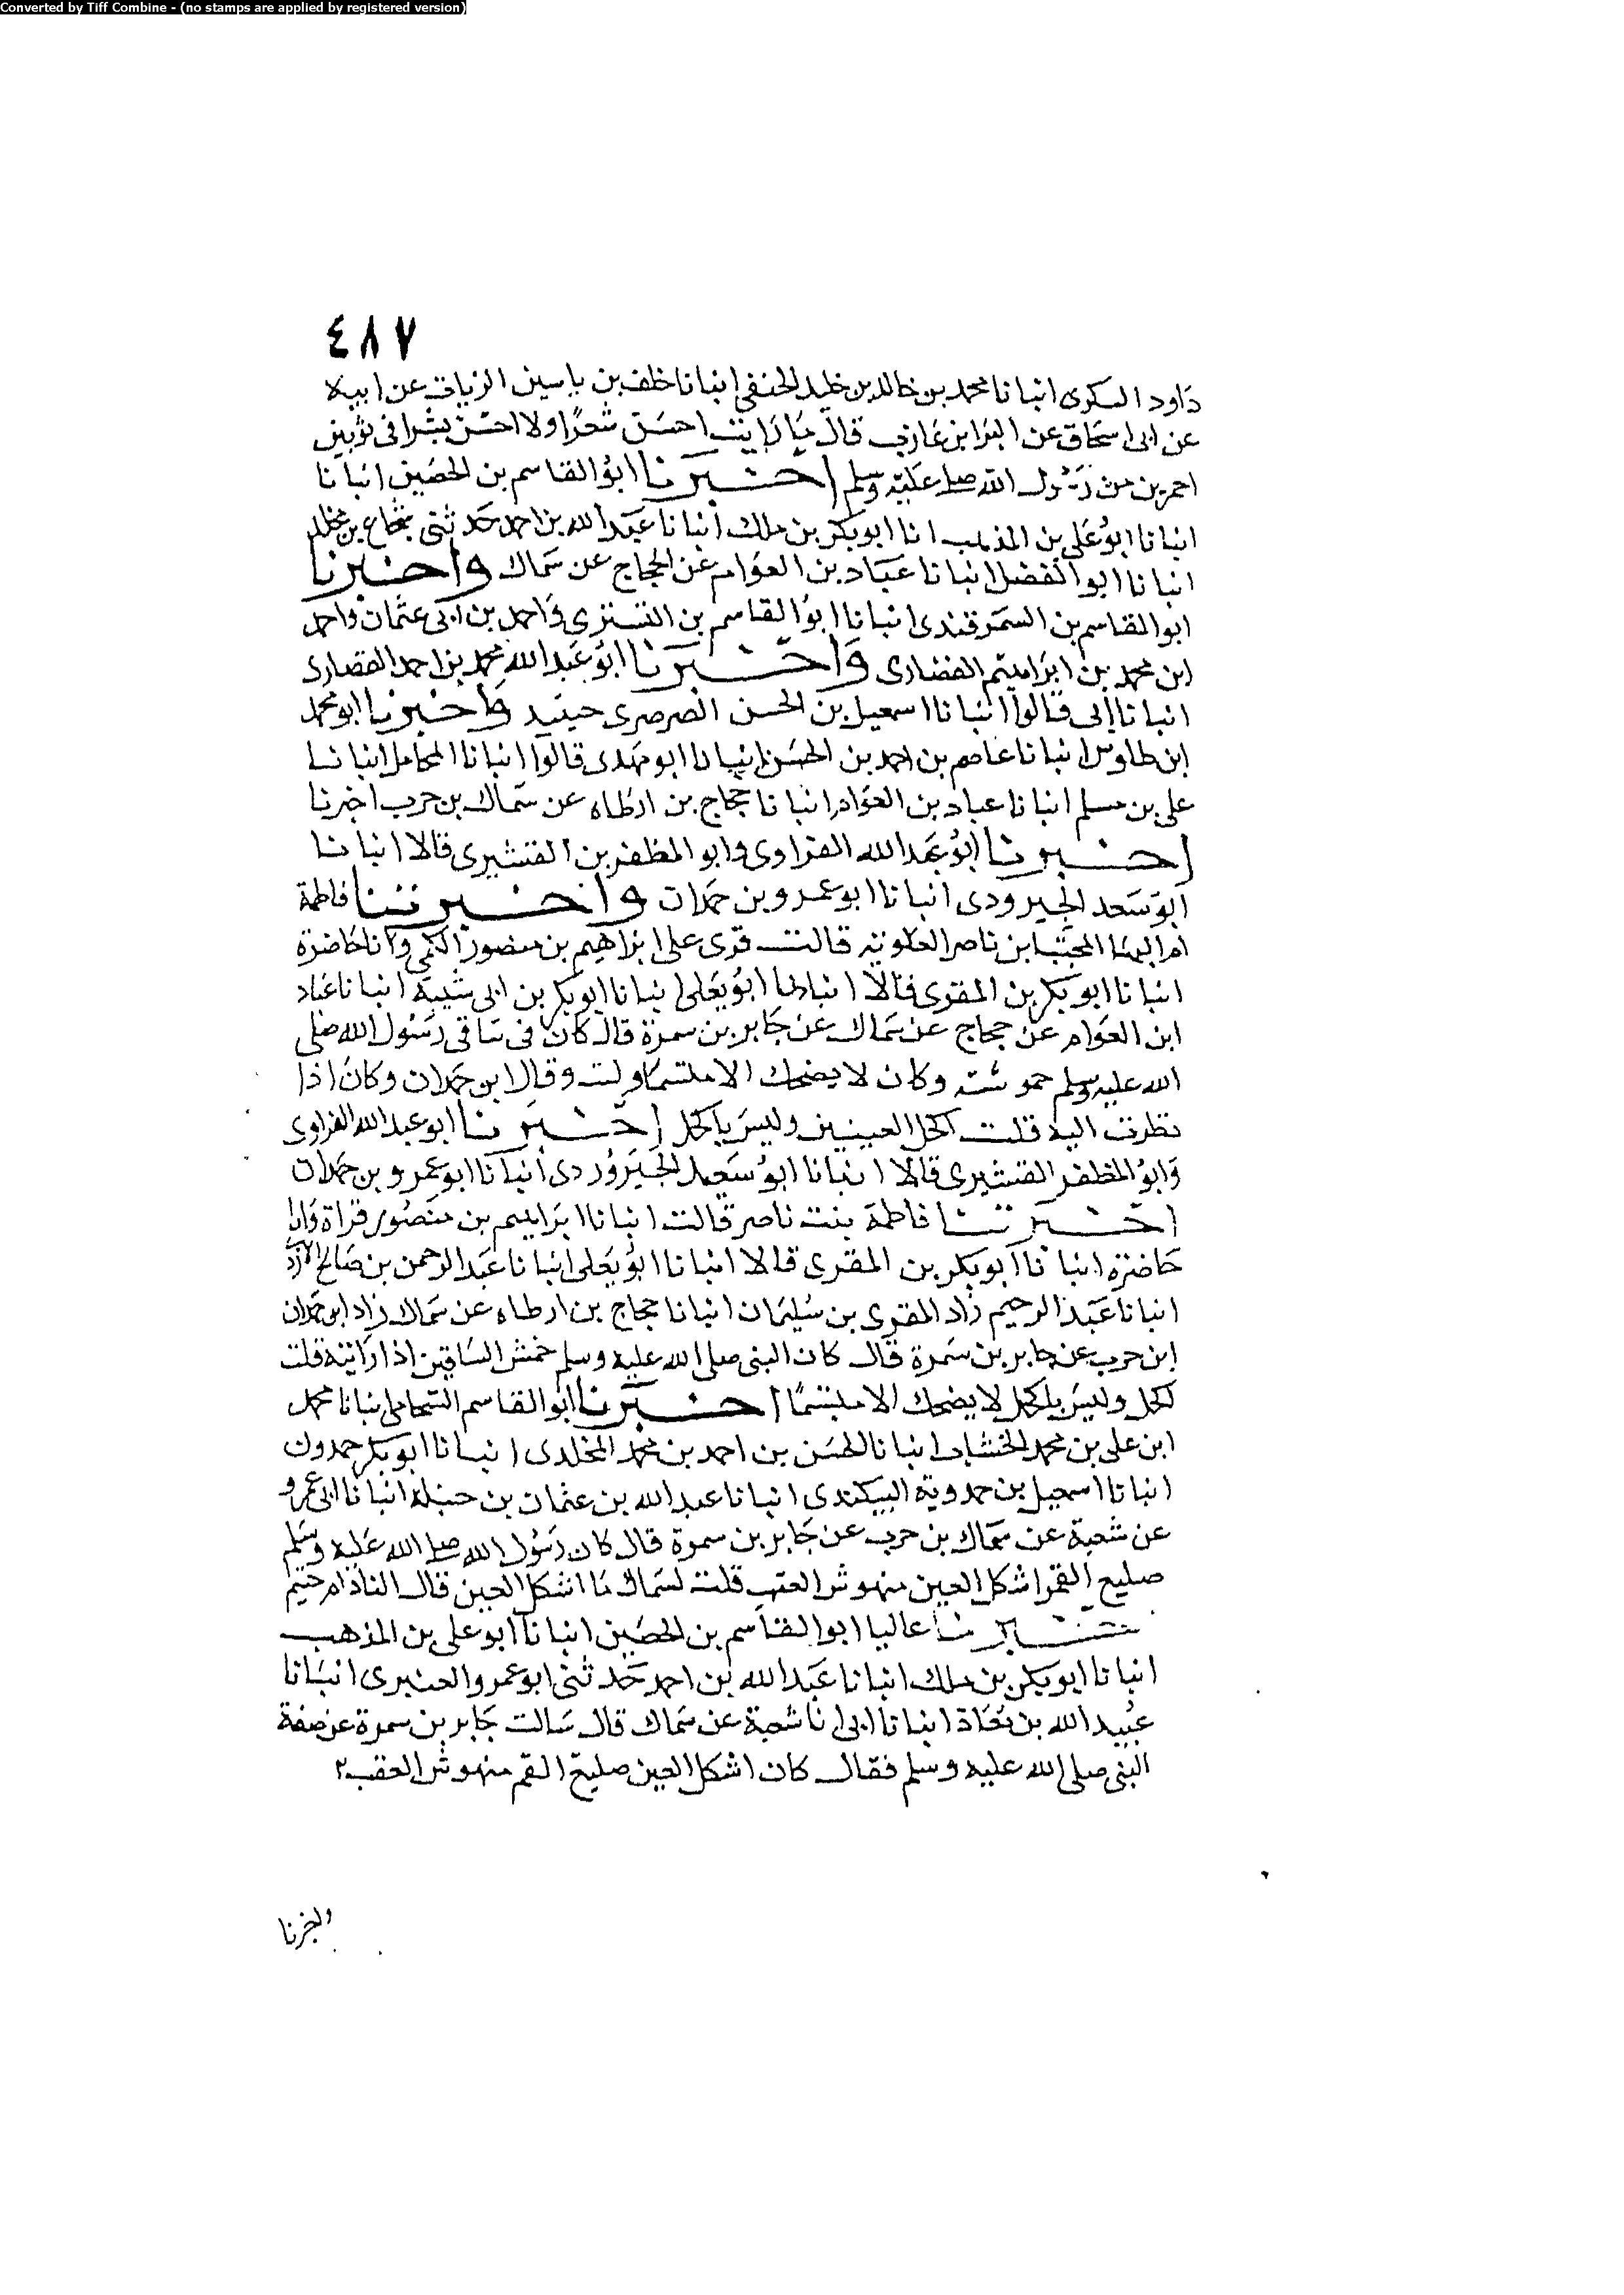 Converted by Tiff Combine - (no stamps are applied by registered version)
٤٨٧
داود السكرى انبانا محمد بن خالد بن خليد الحنفى انبانا خلف بن ياسين الزيات عن ابيه
عن ابى اسحاق عن البرا ابن عازب قال ما رايت احسن شعرا ولا احسن بشرا فى ثوبين
احمرين من رسول الله صلى عليه وسلم اخبرنا ابو القاسم بن الحصين انبانا
انبانا ابو على بن المذهب انا ابو بكر بن ملك انبانا عبد الله بن احمد حدثنى شجاع بن مخلد
انبانا ابو الفضل انبانا عباد بن العوام عن الحجاج عن سماك واخبرنا
ابو القاسم بن السمرقندى انبانا ابو القاسم بن التسترى واحمد بن ابى عثمان واحمد
ابن محمد بن ابراهيم القضارى واخبرنا ابو عبد الله محمد بن احمد القصارى
انبانا ابى قالوا انبانا اسمعيل بن الحسن الصرصرى حينيد واخبرنا ابو محمد
ابن طاوس انبانا عاصم بن احمد بن الحسن انبانا ابو مهدى قالوا انبانا المحامل انبانا
على بن مسلم انبانا عباد بن العوام انبانا حجاج بن ارطاه عن سماك بن حرب اخبرنا
اخبرنا ابو عبد الله الفراوى وابو المظفر بن القشيرى قالا انبانا
ابو سعد الجيرودى انبانا ابو عمرو بن حمدان واخبرتنا فاطمة
ام البها المجتبا بن ناصر العلويه قالت قرى على ابراهيم بن منصور السلمى وانا حاضرة
انبانا ابو بكر بن المقرى قالا انبانا ابو يعلى انبانا ابو بكر بن ابى شيبة انبانا عباد
ابن العوام عن حجاج عن سماك عن جابر بن سمرة قال كان فى ساقى رسول الله صلى
الله عليه وسلم حموشته وكان لا يضحك الا ملتسما ولت وقال ابن حمدان وكان اذا
نظرت اليه قلت اكحل العينين وليس باكحل اخبرنا ابو عبد الله الفراوى
وابو المظفر القشيرى قالا انبانا ابو سعد الجيرودى انبانا ابو عمرو بن حمدان
اخبرتنا فاطمة بنت ناصر قالت انبانا ابراهيم بن منصور قراة وانا
حاضرة انبانا ابو بكر بن المقرى قالا انبانا ابو يعلى انبانا عبد الرحمن بن صالح الازد
انبانا عبد الرحيم زاد المقرى بن سليمان انبانا حجاج بن ارطاه عن سماك زاد ابن حمدان
ابن حرب عن جابر بن سمرة قال كان النبى صلى الله عليه وسلم خمش الساقين اذا رايته قلت
اكحل وليس باكحل لا يضحك الا متبسما اخبرنا ابو القاسم الشحامى انبانا محمد
ابن على بن محمد الخشاب انبانا الحسن بن احمد بن محمد المخلدى انبانا ابو بكر حمدون
انبانا اسمعيل بن حمدوية البيكندى انبانا عبد الله بن عثمان بن حبلة انبانا ابى عمرو
عن شعبة عن سماك بن حرب عن جابر بن سمرة قال كان رسول الله صلى الله عليه وسلم
صليع القم اشكل العين منهوش العقب قلت لسماك ما اشكل العين قال
اخبرنا عاليا ابو القاسم بن الحصين انبانا ابو على بن المذهب
انبانا ابو بكر بن ملك انبانا عبد الله بن احمد حدثنى ابو عمرو العنبرى انبانا
عبيد الله بن معاذ انبانا ابى انا شعبة عن سماك قال سالت جابر بن سمرة عن صفة
النبى صلى الله عليه وسلم فقال كان اشكل العين صليع القم منهوش العقب ٢
واخبرنا